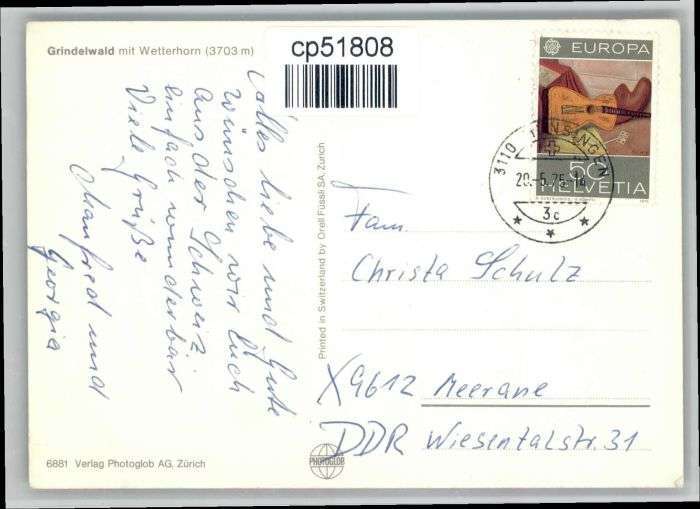 Grindelwald mit Wetterhorn (3703 m)
cp51808
Alles liebe und Gute
wünschen wir Euch
aus der Schweiz
einfach wunderbar
Viele Grüße
Manfred und
Georgia
Printed in Switzerland by Orell Füssli SA, Zurich
EUROPA
50
HELVETIA
3110 MÜNSINGEN
20.-5.75-14
3c
Fam.
Christa Schulz
X9612 Meerane
DDR Wiesentalstr. 31
PHOTOGLOB
6881 Verlag Photoglob AG, Zürich